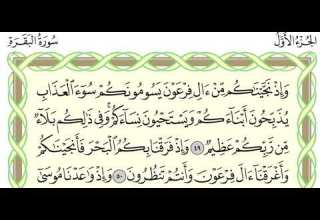 الجزء الأول سورة البقرة
وَإِذْ نَجَّيْنَٰكُم مِّنْ ءَالِ فِرْعَوْنَ يَسُومُونَكُمْ سُوٓءَ ٱلْعَذَابِ
يُذَبِّحُونَ أَبْنَآءَكُمْ وَيَسْتَحْيُونَ نِسَآءَكُمْ ۚ وَفِى ذَٰلِكُم بَلَآءٌ
مِّن رَّبِّكُمْ عَظِيمٌ ٤٩ وَإِذْ فَرَقْنَا بِكُمُ ٱلْبَحْرَ فَأَنجَيْنَٰكُمْ
وَأَغْرَقْنَآ ءَالَ فِرْعَوْنَ وَأَنتُمْ تَنظُرُونَ ٥٠ وَإِذْ وَٰعَدْنَا مُوسَىٰٓ